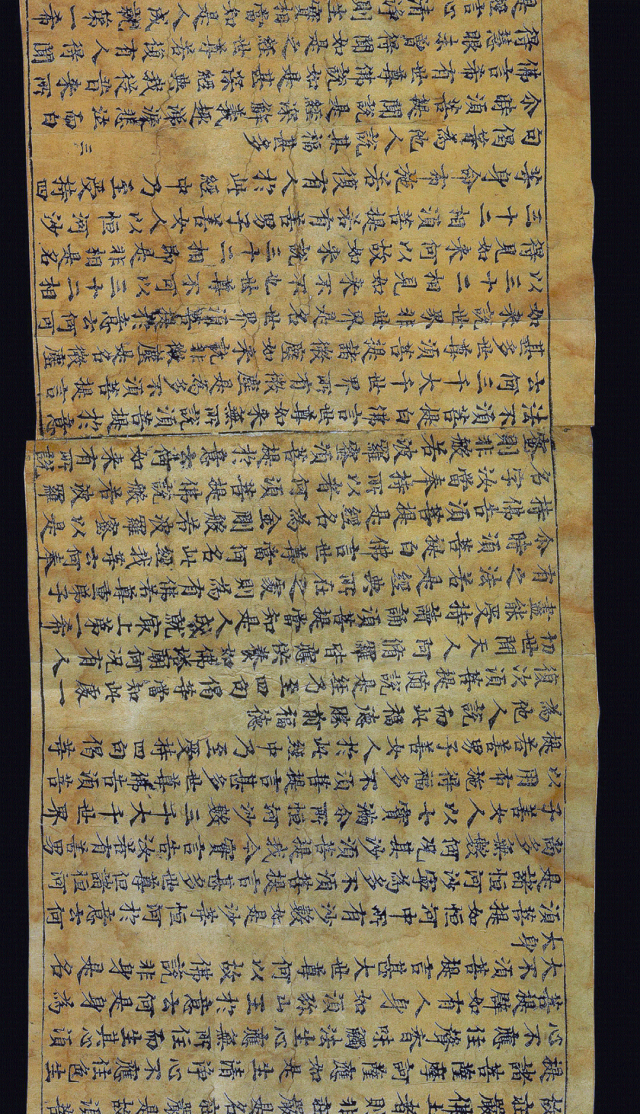 故莊嚴佛土者則非莊嚴是名莊嚴是故須菩
提諸菩薩摩訶薩應如是生清淨心不應住色生
心不應住聲香味觸法生心應無所住而生其心須
菩提譬如有人身如須彌山王於意云何是身為
大不須菩提言甚大世尊何以故佛說非身是名
大身
須菩提如恒河中所有沙數如是沙等恒河於意云何
是諸恒河沙寧為多不須菩提言甚多世尊但諸恒河
尚多無數何況其沙須菩提我今實言告汝若有善男
子善女人以七寶滿尒所恒河沙數三千大千世界
以用布施得福多不須菩提言甚多世尊佛告須菩
提若善男子善女人於此經中乃至受持四句偈等
為他人說而此福德勝前福德
復次須菩提隨說是經乃至四句偈等當知此處一
切世間天人阿脩羅皆應供養如佛塔廟何況有人
盡能受持讀誦須菩提當知是人成就最上第一希
有之法若是經典所在之處則為有佛若尊重弟子
尒時須菩提白佛言世尊當何名此經我等云何奉
持佛告須菩提是經名為金剛般若波羅蜜以是
名字汝當奉持所以者何須菩提佛說般若波羅
蜜則非般若波羅蜜須菩提於意云何如來有所說
法不須菩提白佛言世尊如來無所說須菩提於意
云何三千大千世界所有微塵是為多不須菩提言
甚多世尊須菩提諸微塵如來說非微塵是名微塵
如來說世界非世界是名世界須菩提於意云何可
以三十二相見如來不不也世尊不可以三十二相
得見如來何以故如來說三十二相即是非相是名
三十二相須菩提若有善男子善女人以恒河沙
等身命布施若復有人於此經中乃至受持四
句偈等為他人說其福甚多 三
尒時須菩提聞說是經深解義趣涕淚悲泣而白
佛言希有世尊佛說如是甚深經典我從昔來所
得慧眼未曾得聞如是之經世尊若復有人得聞
是經信心清淨則生實相當知是人成就第一希